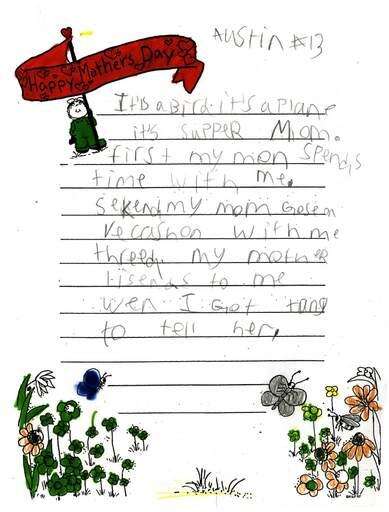 Austin #13
Happy Mothers Day
It's a Bird it's a Plane
it's SUPPER Mom.
first my mon Spends
time with me.
sekend my mom Gose on
Vecashon with me
threed, my mother
lisends to me
wen I Got tang
to tell her.